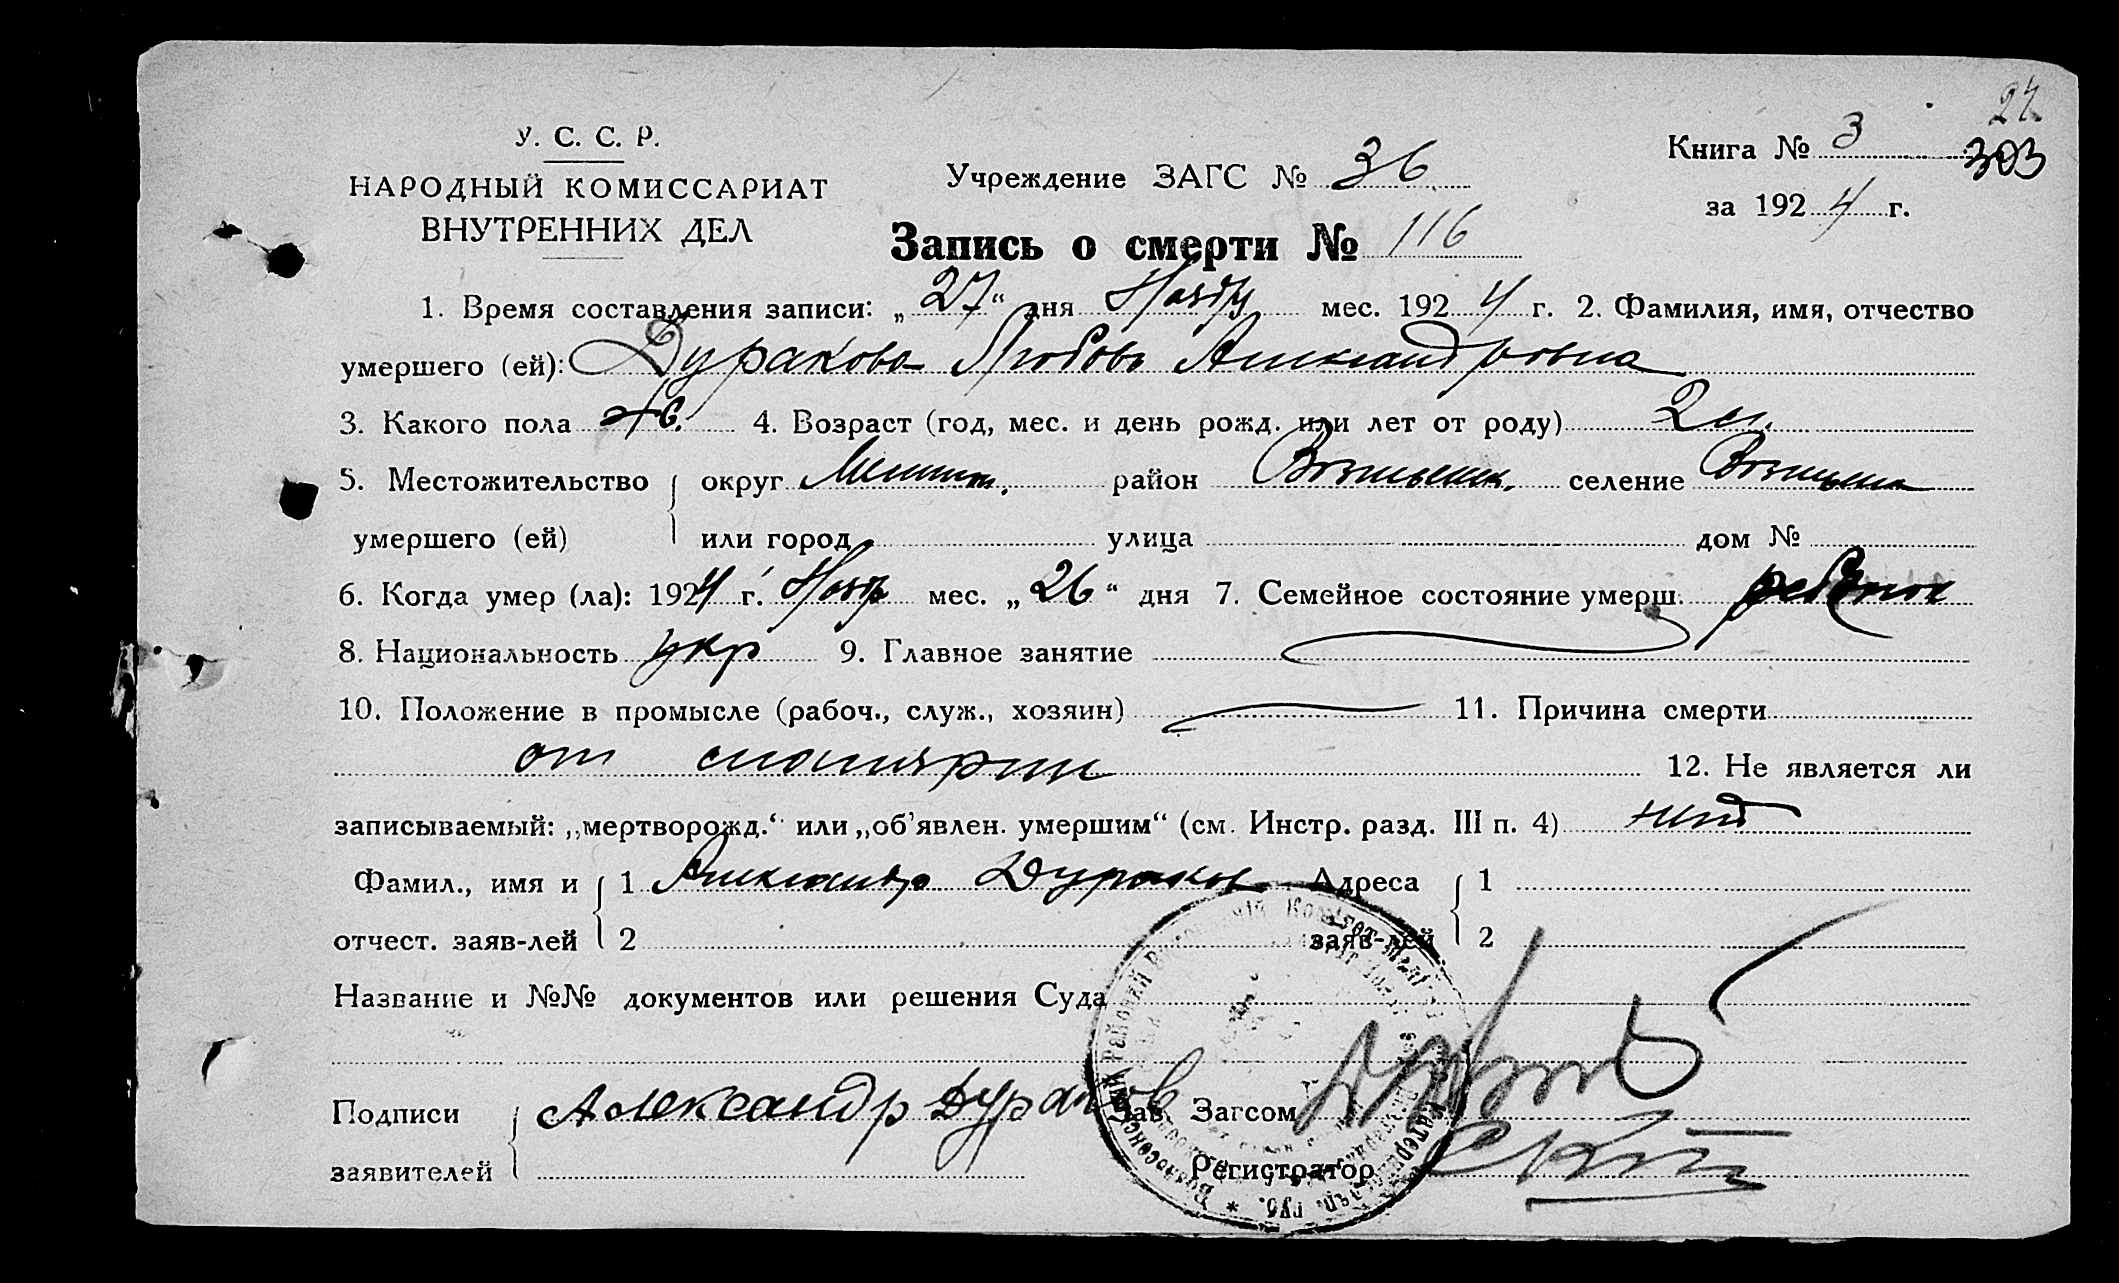 24
У. С. С. Р.
НАРОДНЫЙ КОМИССАРИАТ
ВНУТРЕННИХ ДЕЛ
Учреждение ЗАГС № 36
Книга № 3 303
за 1924 г.
Запись о смерти № 116
1. Время составления записи: „27“ дня Ноября мес. 1924 г. 2. Фамилия, имя, отчество
умершего (ей): Дуракова Любовь Александровна
3. Какого пола ж. 4. Возраст (год, мес. и день рожд. или лет от роду) 2
5. Местожительство округ район селение
умершего (ей) или город улица дом №
6. Когда умер (ла): 1924 г. Ноябр мес. „26“ дня 7. Семейное состояние умерш. ребенок
8. Национальность укр 9. Главное занятие
10. Положение в промысле (рабоч., служ., хозяин) 11. Причина смерти
от скарлатин 12. Не является ли
записываемый: „мертворожд.“ или „об'явлен. умершим“ (см. Инстр. разд. III п. 4) нет
Фамил., имя и 1 Александр Дураков Адреса 1
отчест. заяв-лей 2 заяв-лей 2
Название и №№ документов или решения Суда
Подписи Александр Дураков Зав. Загсом
заявителей Регистратор